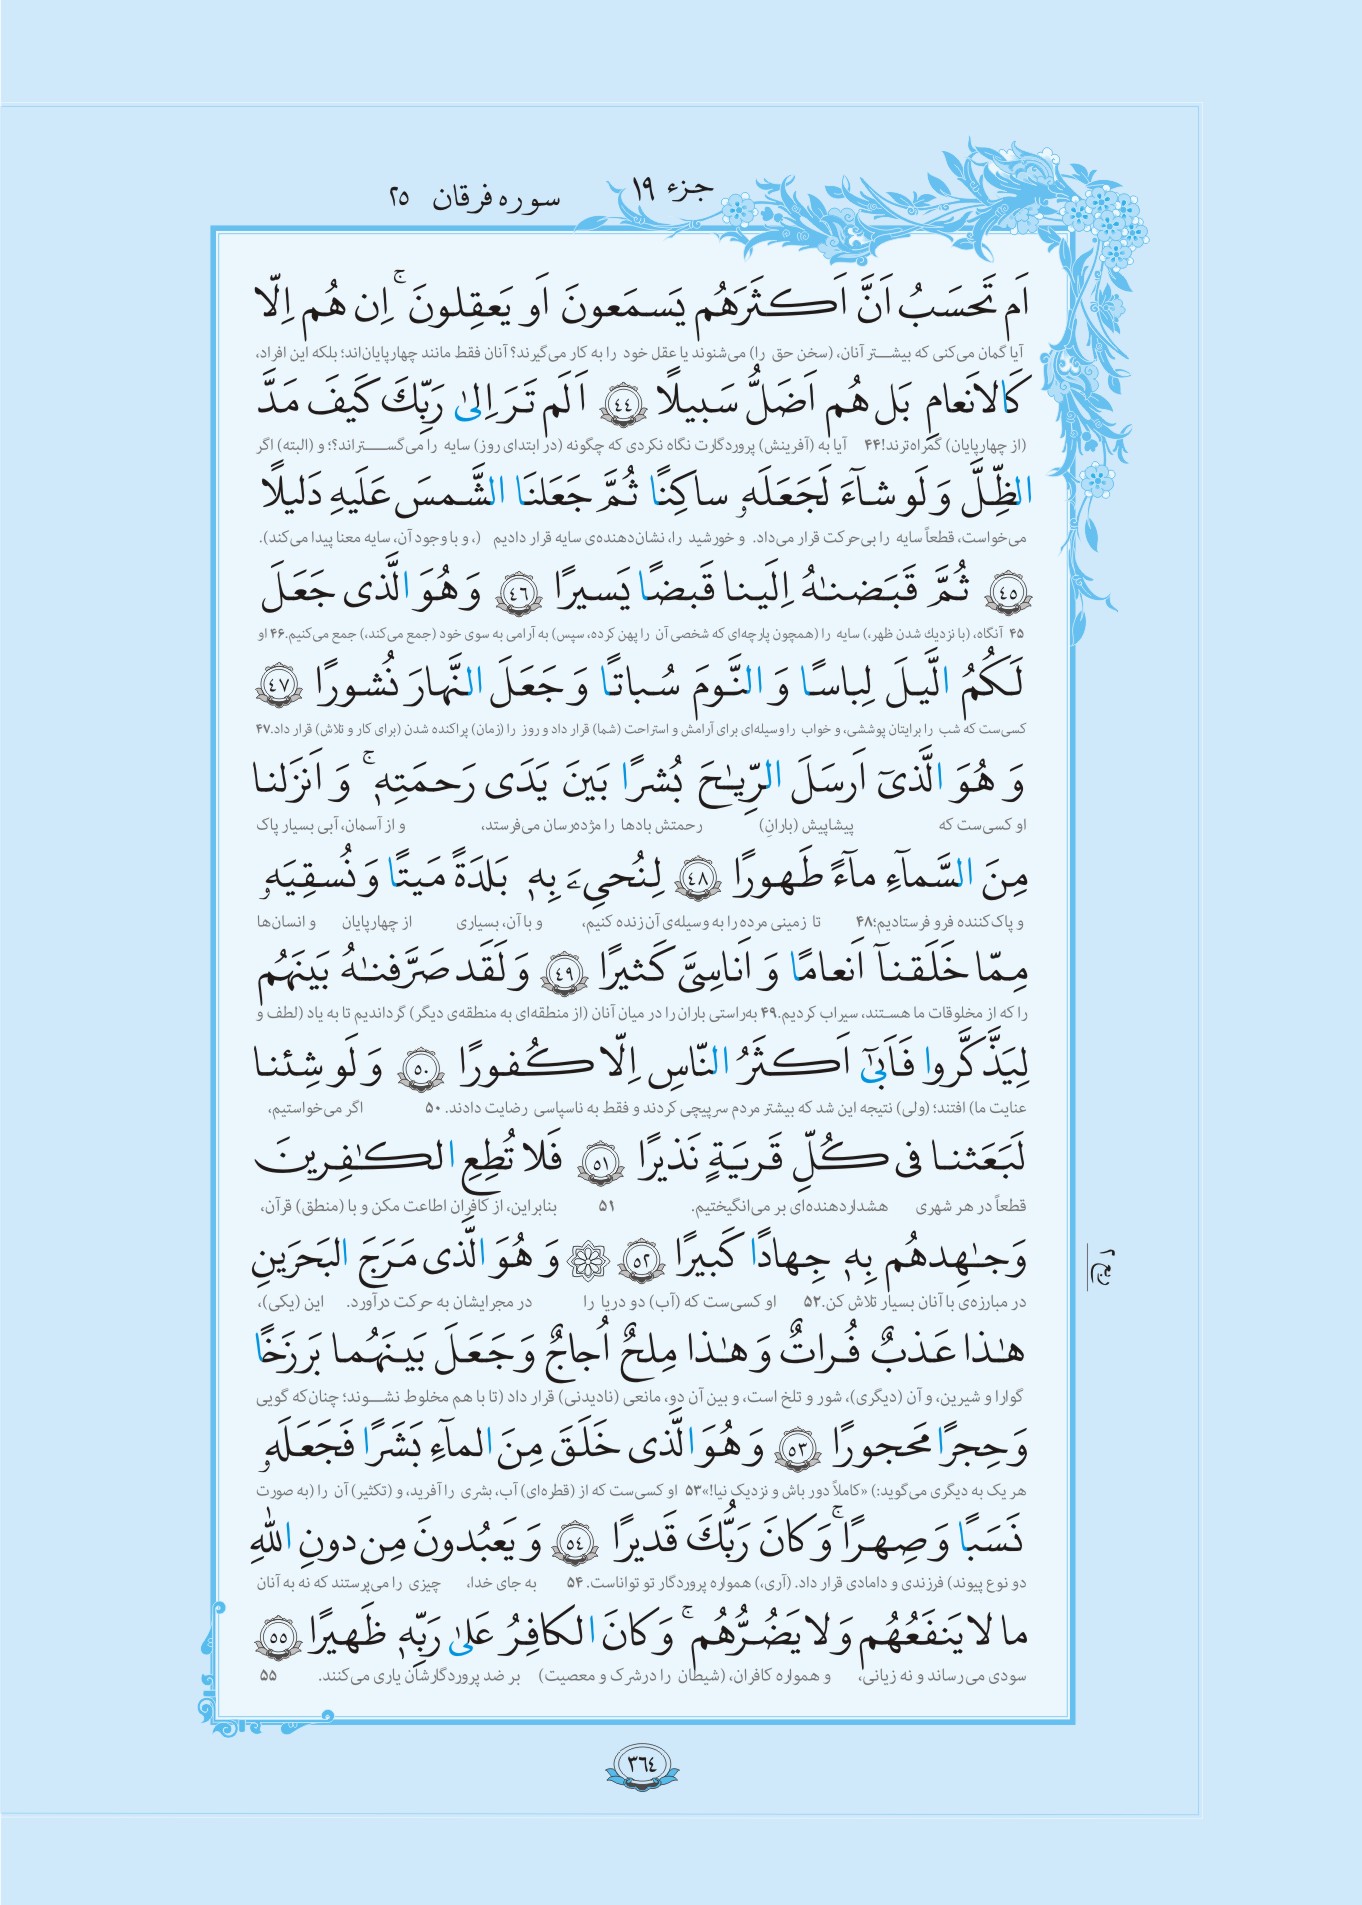 جزء ۱۹
سوره فرقان ۲۵
اَم تَحسَبُ اَنَّ اَكثَرَهُم يَسمَعونَ اَو يَعقِلونَ ۚ اِن هُم اِلّا
آیا گمان می‌کنی که بیشتر آنان، (سخن حق را) می‌شنوند یا عقل خود را به کار می‌گیرند؟ آنان فقط مانند چهارپایان‌اند؛ بلکه این افراد،
كَالاَنعامِ بَل هُم اَضَلُّ سَبيلًا ﴿٤٤﴾ اَلَم تَرَ اِلىٰ رَبِّكَ كَيفَ مَدَّ
(از چهارپایان) گمراه‌ترند! ۴۴ آیا به (آفرینش) پروردگارت نگاه نکردی که چگونه (در ابتدای روز) سایه را می‌گستراند؟؛ و (البته) اگر
الظِّلَّ وَ لَو شآءَ لَجَعَلَهٗ ساكِنًا ثُمَّ جَعَلنَا الشَّمسَ عَلَيهِ دَليلًا
می‌خواست، قطعاً سایه را بی‌حرکت قرار می‌داد. و خورشید را، نشان‌دهنده‌ی سایه قرار دادیم (، و با وجود آن، سایه معنا پیدا می‌کند).
﴿٤٥﴾ ثُمَّ قَبَضنٰهُ اِلَينا قَبضًا يَسيرًا ﴿٤٦﴾ وَ هُوَ الَّذى جَعَلَ
۴۵ آنگاه، (با نزدیک شدن ظهر،) سایه را (همچون پارچه‌ای که شخصی آن را پهن کرده، سپس) به آرامی به سوی خود (جمع می‌کند،) جمع می‌کنیم. ۴۶ او
لَكُمُ الَّيلَ لِباسًا وَ النَّومَ سُباتًا وَ جَعَلَ النَّهارَ نُشورًا ﴿٤٧﴾
کسی‌ست که شب را برایتان پوششی، و خواب را وسیله‌ای برای آرامش و استراحت (شما) قرار داد و روز را (زمان) پراکنده شدن (برای کار و تلاش) قرار داد. ۴۷
وَ هُوَ الَّذىٓ اَرسَلَ الرِّيٰحَ بُشرًا بَينَ يَدَى رَحمَتِهٖ ۚ وَ اَنزَلنا
او کسی‌ست که پیشاپیش (بارانِ) رحمتش بادها را مژده‌رسان می‌فرستد، و از آسمان، آبی بسیار پاک
مِنَ السَّمآءِ مآءً طَهورًا ﴿٤٨﴾ لِنُحىِۦَ بِهٖ بَلدَةً مَيتًا وَ نُسقِيَهٗ
و پاک‌کننده فرو فرستادیم؛ ۴۸ تا زمینی مرده را به وسیله‌ی آن زنده کنیم، و با آن، بسیاری از چهارپایان و انسان‌ها
مِمّا خَلَقنآ اَنعامًا وَ اَناسِىَّ كَثيرًا ﴿٤٩﴾ وَ لَقَد صَرَّفنٰهُ بَينَهُم
را که از مخلوقات ما هستند، سیراب کردیم. ۴۹ به‌راستی باران را در میان آنان (از منطقه‌ای به منطقه‌ی دیگر) گرداندیم تا به یاد (لطف و
لِيَذَّكَّروا فَاَبىٰٓ اَكثَرُ النّاسِ اِلّا كُفورًا ﴿٥٠﴾ وَ لَو شِئنا
عنایت ما) افتند؛ (ولی) نتیجه این شد که بیشتر مردم سرپیچی کردند و فقط به ناسپاسی رضایت دادند. ۵۰ اگر می‌خواستیم،
لَبَعَثنا فى كُلِّ قَريَةٍ نَذيرًا ﴿٥١﴾ فَلا تُطِعِ الكٰفِرينَ
قطعاً در هر شهری هشداردهنده‌ای بر می‌انگیختیم. ۵۱ بنابراین، از کافران اطاعت مکن و با (منطق) قرآن،
وَ جٰهِدهُم بِهٖ جِهادًا كَبيرًا ﴿٥٢﴾ ۞ وَ هُوَ الَّذى مَرَجَ البَحرَينِ
در مبارزه‌ی با آنان بسیار تلاش کن. ۵۲ او کسی‌ست که (آب) دو دریا را در مجرایشان به حرکت درآورد. این (یکی)،
هٰذا عَذبٌ فُراتٌ وَ هٰذا مِلحٌ اُجاجٌ وَ جَعَلَ بَينَهُما بَرزَخًا
گوارا و شیرین، و آن (دیگری)، شور و تلخ است، و بین آن دو، مانعی (نادیدنی) قرار داد (تا با هم مخلوط نشوند؛ چنان‌که گویی
وَ حِجرًا مَحجورًا ﴿٥٣﴾ وَ هُوَ الَّذى خَلَقَ مِنَ المآءِ بَشَرًا فَجَعَلَهٗ
هر یک به دیگری می‌گوید:) «کاملاً دور باش و نزدیک نیا!» ۵۳ او کسی‌ست که از (قطره‌ای) آب، بشری را آفرید، و (تکثیر) آن را (به صورت
نَسَبًا وَ صِهرًا ۚ وَ كانَ رَبُّكَ قَديرًا ﴿٥٤﴾ وَ يَعبُدونَ مِن دونِ اللهِ
دو نوع پیوند) فرزندی و دامادی قرار داد. (آری،) همواره پروردگار تو تواناست. ۵۴ به جای خدا، چیزی را می‌پرستند که نه به آنان
ما لا يَنفَعُهُم وَ لا يَضُرُّهُم ۚ وَ كانَ الكافِرُ عَلىٰ رَبِّهٖ ظَهيرًا ﴿٥٥﴾
سودی می‌رساند و نه زیانی، و همواره کافران، (شیطان را در شرک و معصیت) بر ضد پروردگارشان یاری می‌کنند. ۵۵
٣٦٤